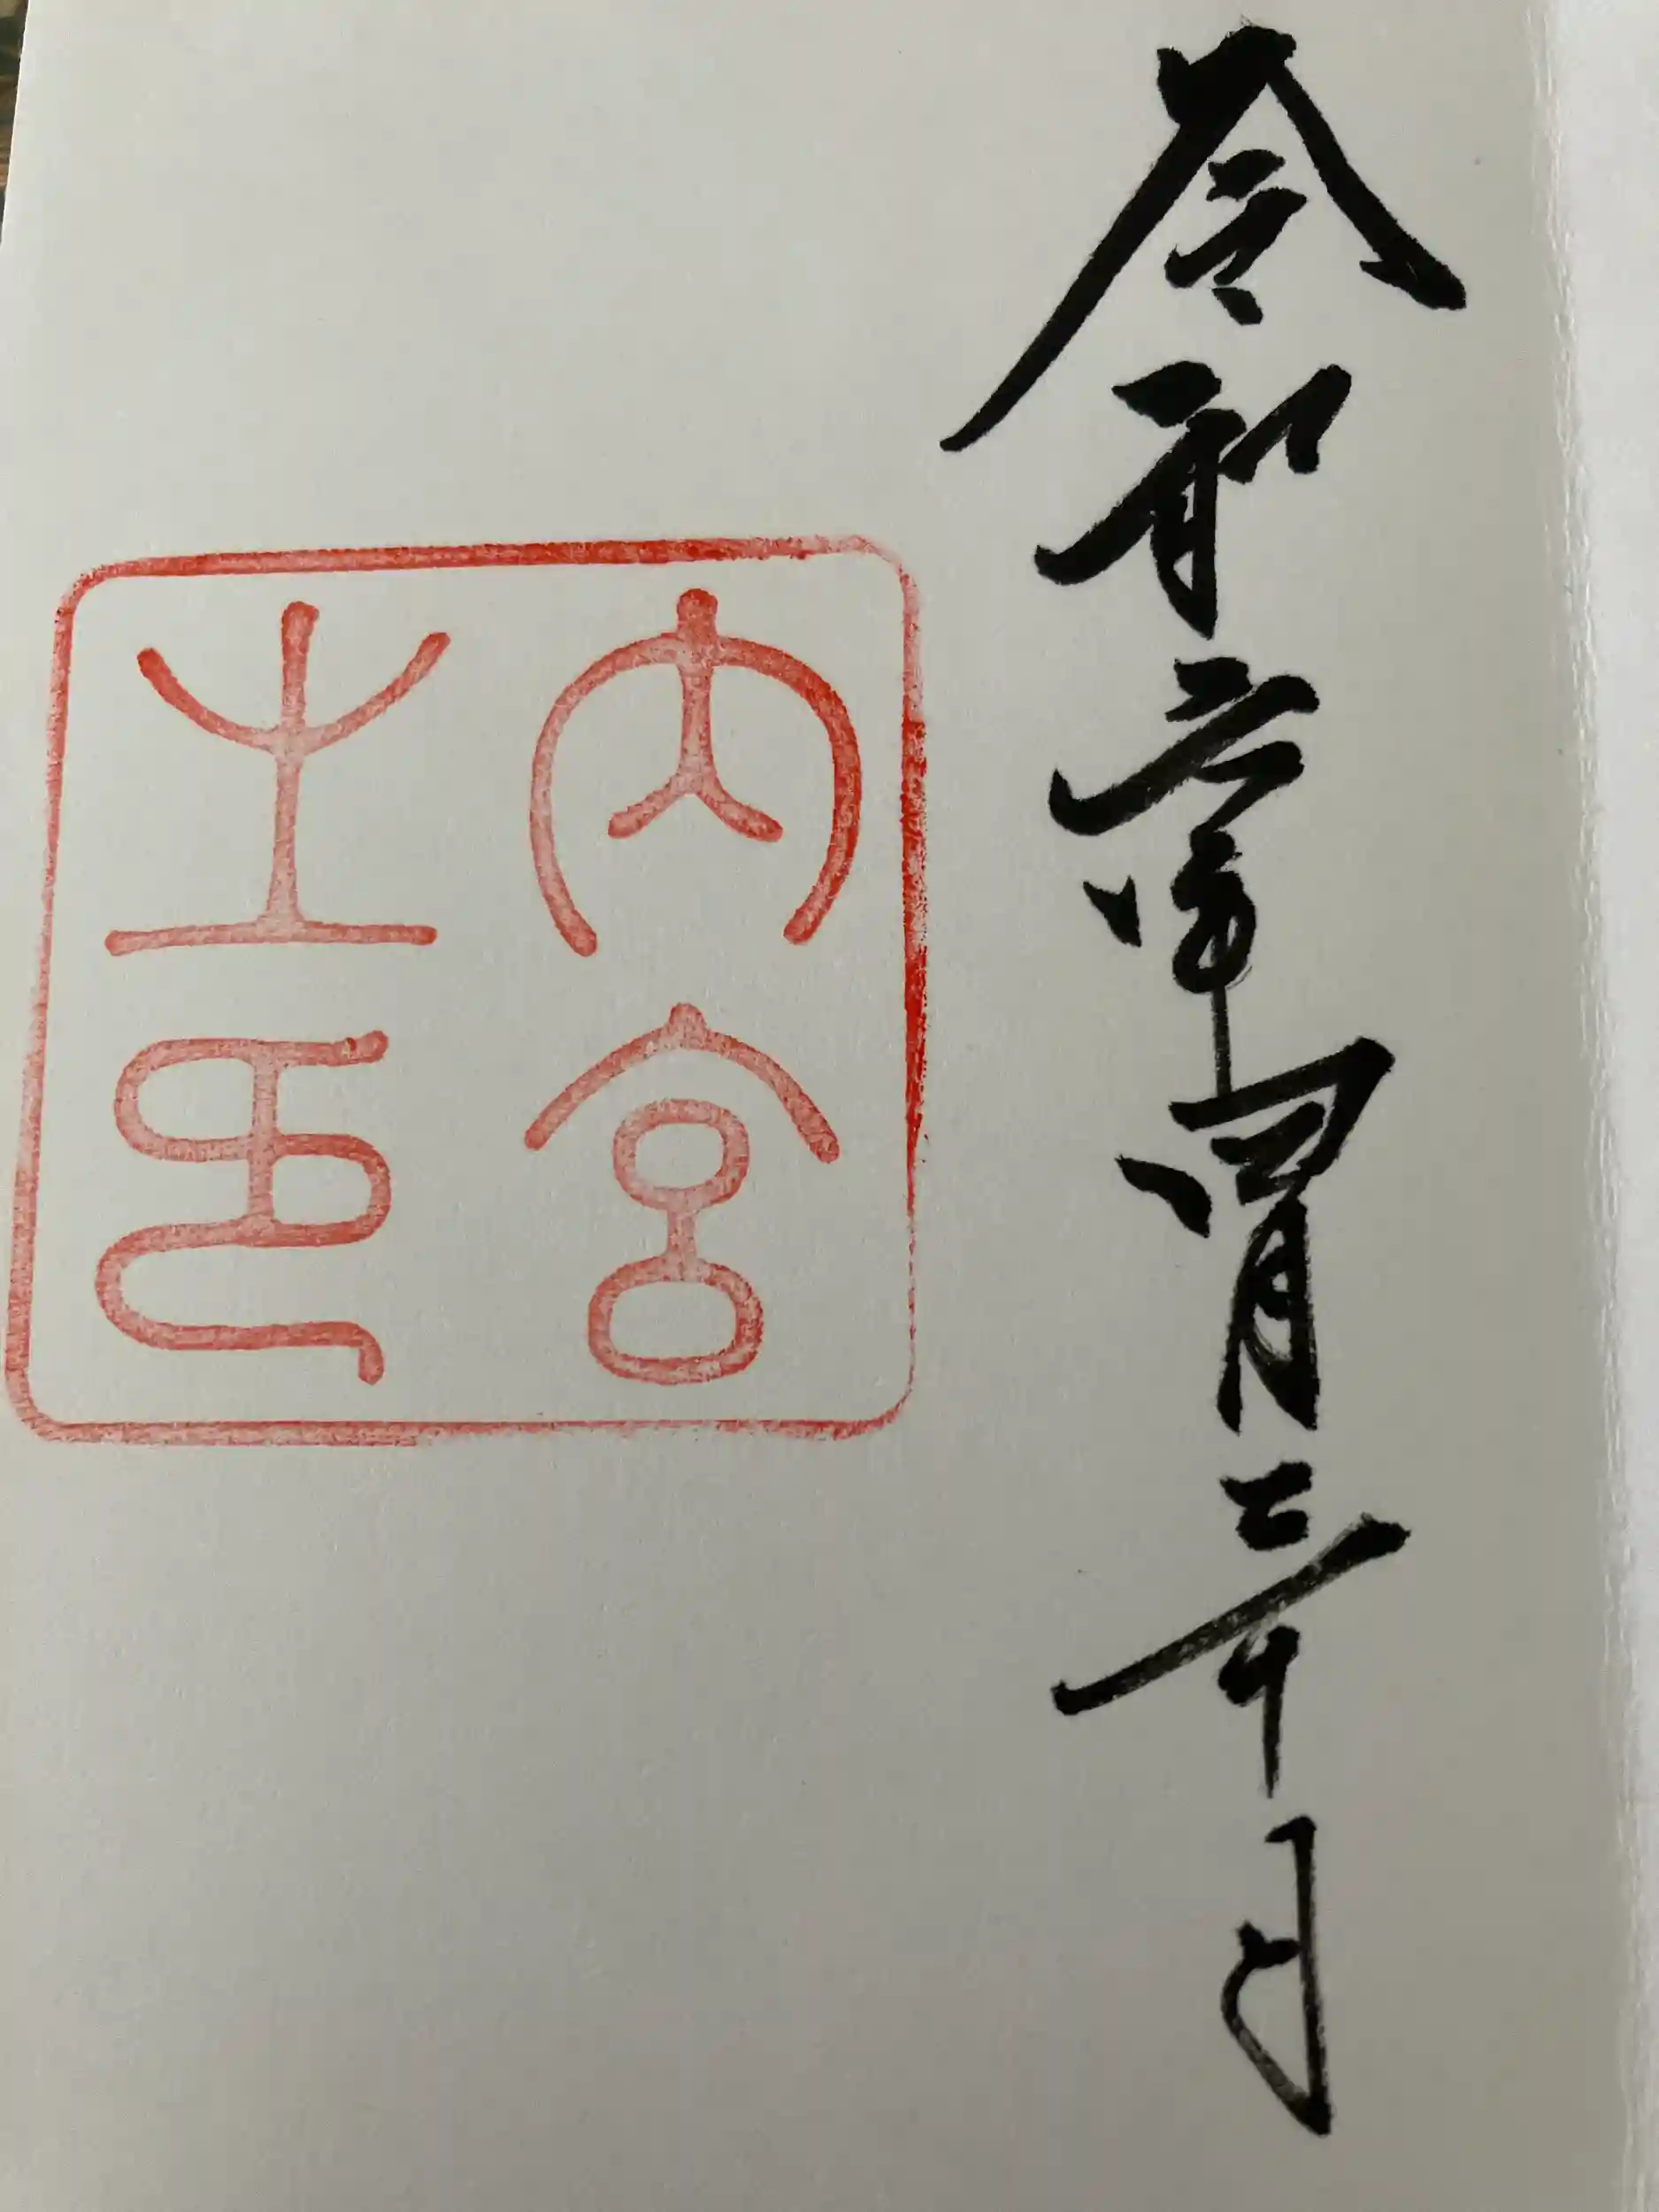 令和六年四月二十日
内宮
之印